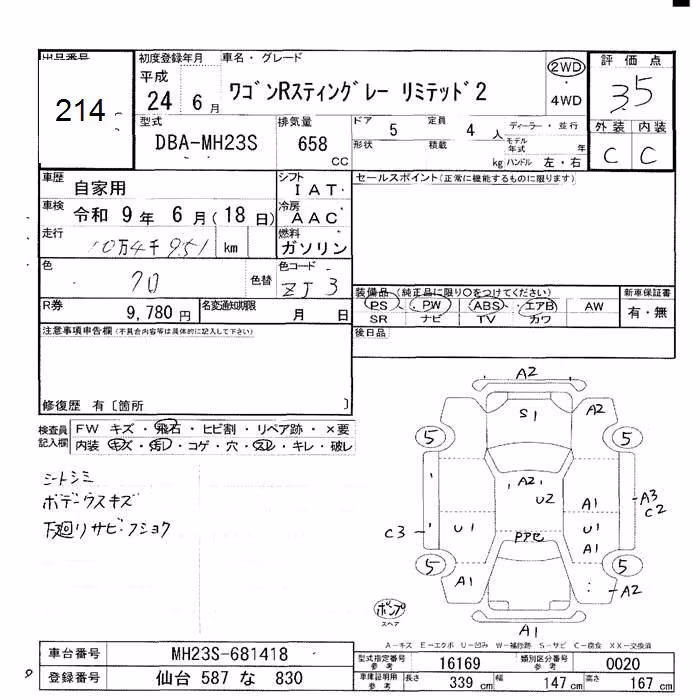 出品番号
214
初度登録年月
平成
24年 6月
車名・グレード
ワゴンRスティングレー リミテッド2
2WD
4WD
評価点
35
外装 内装
C C
型式
DBA-MH23S
排気量
658
CC
ドア
5
定員
4人
ディーラー・並行
形状
積載
kg
モデル年式
年
ハンドル 左・右
車歴
自家用
シフト
IAT
セールスポイント(正常に機能するものに限ります)
車検
令和 9年 6月(18日)
冷房
AAC
走行
10万4千951 km
燃料
ガソリン
色
色替
色コード
ZJ3
R券
9,780円
名変通知期限
月 日
装備品(純正品に限り○をつけてください)
PS PW ABS エアB AW
SR ナビ TV カワ
新車保証書
有・無
後日品
注意事項申告欄(不具合内容等は具体的に記入して下さい)
修復歴 有〔箇所 〕
検査員記入欄
FW キズ・飛石・ヒビ割・リペア跡・×要
内装 キズ・汚レ・コゲ・穴・スレ・キレ・破レ
シートシミ
ボデーウスキズ
下廻りサビ・フショク
A2
S1
A2
5
5
A2
U2
A1
A3
C2
C3
U1
U1
A1
PPセ
5
5
A1
A2
ポンプ
スペア
A1
A-キズ E-エクボ U-凹み W-補修跡 S-サビ C-腐食 XX-交換済
車台番号
MH23S-681418
型式指定番号
参考
16169
類別区分番号
参考
0020
登録番号
仙台 587 な 830
車庫証明用
参考
長さ
339 cm
幅
147 cm
高さ
167 cm